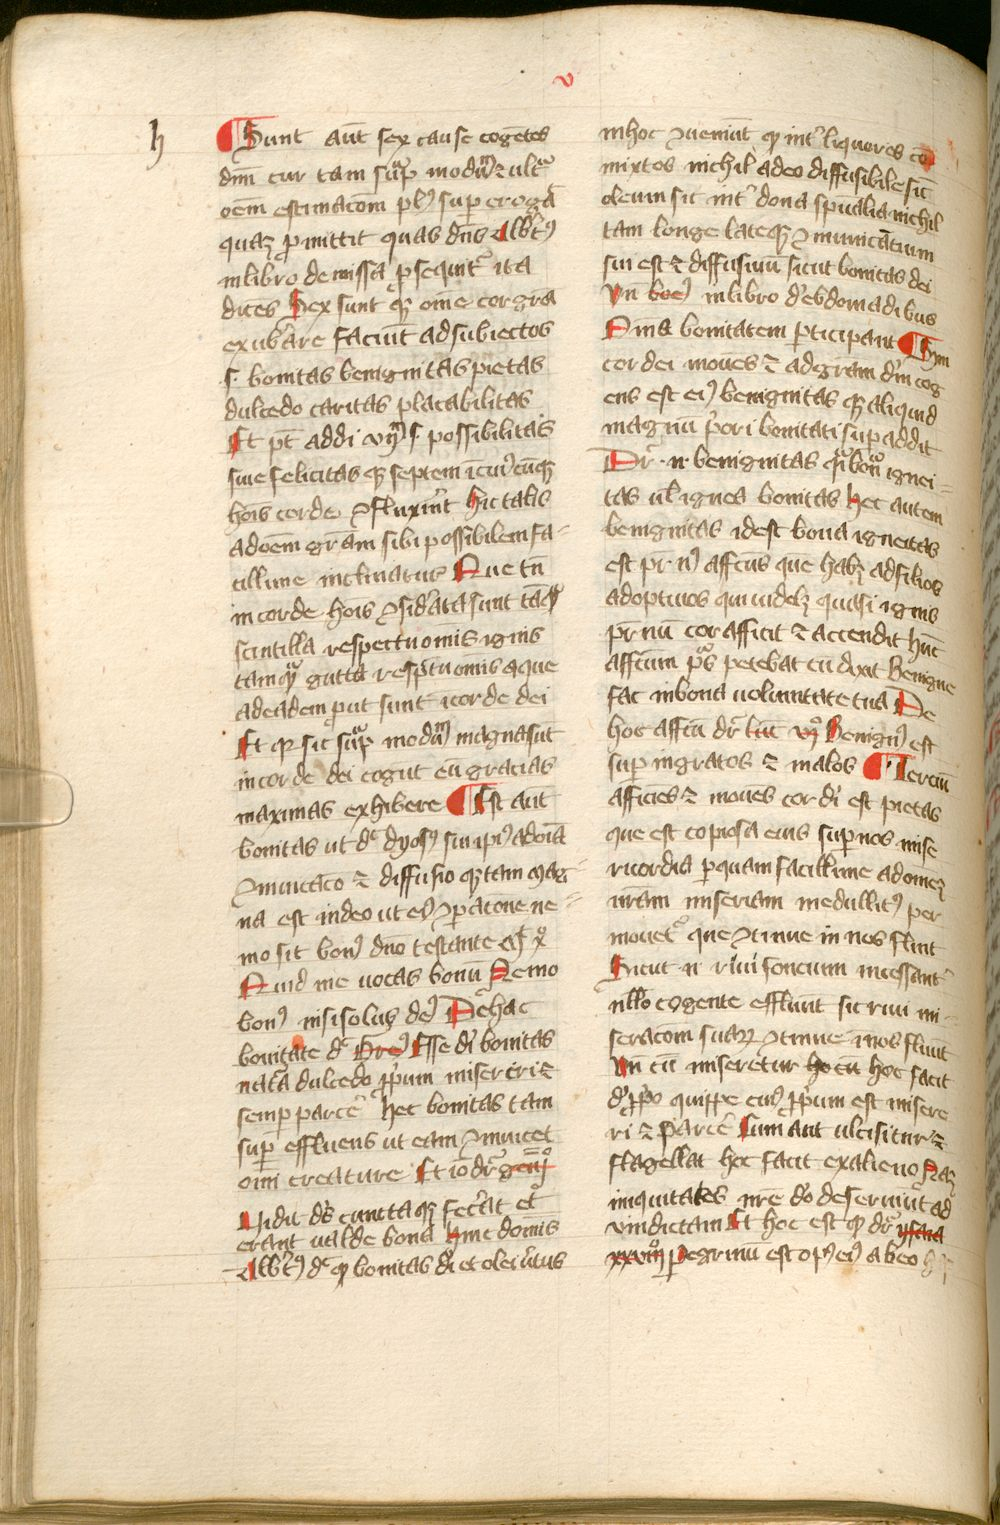 v
h
Sunt aūt sex cause cogētes
dm̄ cur tam sup̄ modū ⁊ ultᵃ
oēm estimacōm plꝰ sup eroga
quaꝫ ꝓmittit quas dn̄s Albtꝰ
in libro de missa ꝓsequitᷣ ita
dicēs Sex sunt qꝫ oīne cor grā
exubāre faciūt ad subiectos
s. bonitas benignitas pietas
dulcedo caritas placabilitas
Et pt̄ addi vijᵐ s. possibilitas
siue felicitas qꝫ septem ī cuiꝰcūqꝫ
hoīs corde ꝯfluxīnt hic talis
ad oēm grām sibi possibilem fa-
cillime inclinatur Que tn̄
in corde hoīs ꝯsidata sunt tāqᷓ
scintilla respectu omīs ignis
tamqᷓ gutta respctu omīs aque
adeadem put sunt ī corde dei
Et qꝛ sic supᵃ modū magna sūt
in corde dei cogūt eū gracias
maximas exhibere Est aūt
bonitas ut dᶜ dyosꝰ sui ipiꝰ ad oīa
ꝯmuicacō ⁊ diffusio qꝫ tam mag-
na est in deo ut eiꝰ ꝯpacōne ne-
mo sit bonꝰ dno testante
Quid me uocas bonū Nemo
bonꝰ nisi solus deꝰ De hac
bonitate dᶜ Greꝰ Esse di bonitas
natᵃ dulcedo ꝓpum misereri ⁊
semp parcē hec bonitas tam
sup effluens ut eam ꝯmuicet
omī creature Et iō drᷣ gen j
Uidit ds̄ cuncta qꝫ fecat et
erant ualde bona hinc domīs
Albtꝰ dᶜ qꝫ bonitas di et olei ūtus
in hoc ꝯueniūt qꝫ intᷣ liquores cō
mixtos nichil adeo diffusibile sic̄
oleum sit intᷣ dona spūalia nichil
tam longe lateqꝫ ꝯmunicatiuum
sui est ⁊ diffusiuū sicut bonitas dei
Vn̄ boeꝰ in libro dᷣ ebdomadibus
Oīna bonitatem pticipant Sᷣm
cor dei moues ⁊ ad grām dᷣm cog
ens est eiꝰ benignitas qꝫ aliquid
magnū pori bonitati sup addit
Drᷣ n̄ benignitas qᷓ bonᵃ ignei-
tas ul ignea bonitas hec autem
benignitas id est bona igneitas
est pr̄ nꝰ affcūs quē habꝫ ad filios
adoptiuos qui uidelꝫ quasi ignis
pr̄nū cor afficit ⁊ accendit hūc
affcūm ps̄ petebat cū dixit Benigne
fac in bona uoluntate tua De
hoc affcū drᷣ luc vjᵒ Benignꝰ est
sup ingratos ⁊ malos Terciū
afficies ⁊ moues cor di est pietas
que est copiosa eius sup nos mise
ricordia p quam facillime ad omēꝫ
nrām miseriam medullitꝰ per
mouetᷣ que ꝯtinue in nos fluit
Sicut n̄ riui foncium incessantᷣ
nullo cogente effluūt sic riui mi-
seracōm suaꝝ ꝯtinue ī nos fluūt
Vn̄ cū miseretur ho cū hoc facit
dᷣ ꝓpo quippe cuiꝰ ꝓpum est misere
ri ⁊ parcē Cum aut ulciscitur ⁊
flagellat hoc facit ex alieno Naꝫ
iniquitates nrē do deseruiūt ad
uindictam Et hoc est qꝫ drᷣ ysaia
xxviij Pegrinū est opꝰ eiꝰ ab eo